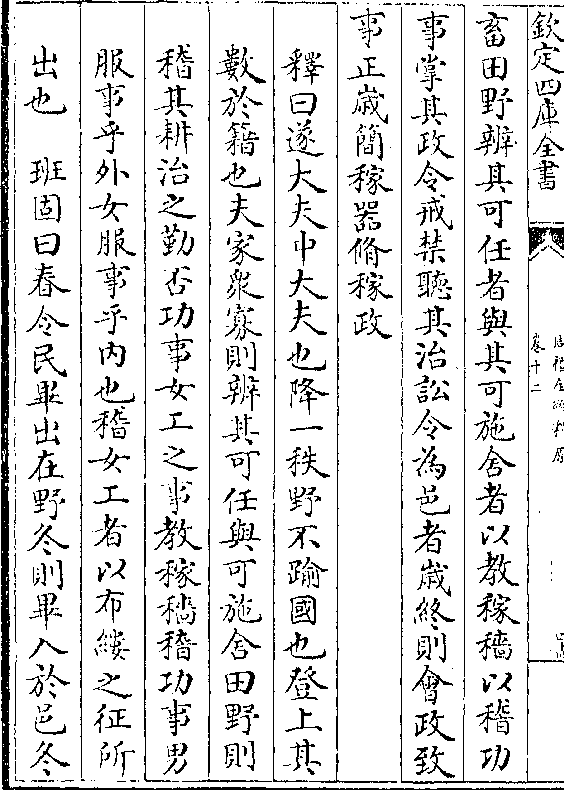 欽定四庫全書
卷十二
畜田野辨其可任者與其可施舍者以教稼穡以稽功
事掌其政令戒禁聽其治訟令為邑者歲終則會政致
事正歲簡稼器脩稼政
釋曰遂大夫中大夫也降一秩野不踰國也登上其
數於籍也夫家衆寡則辨其可任與可施舍田野則
稽其耕治之勤否功事女工之事教稼穡稽功事男
服事乎外女服事乎内也稽女工者以布縷之征所
出也 班固曰春令民畢出在野冬則畢入於邑冬